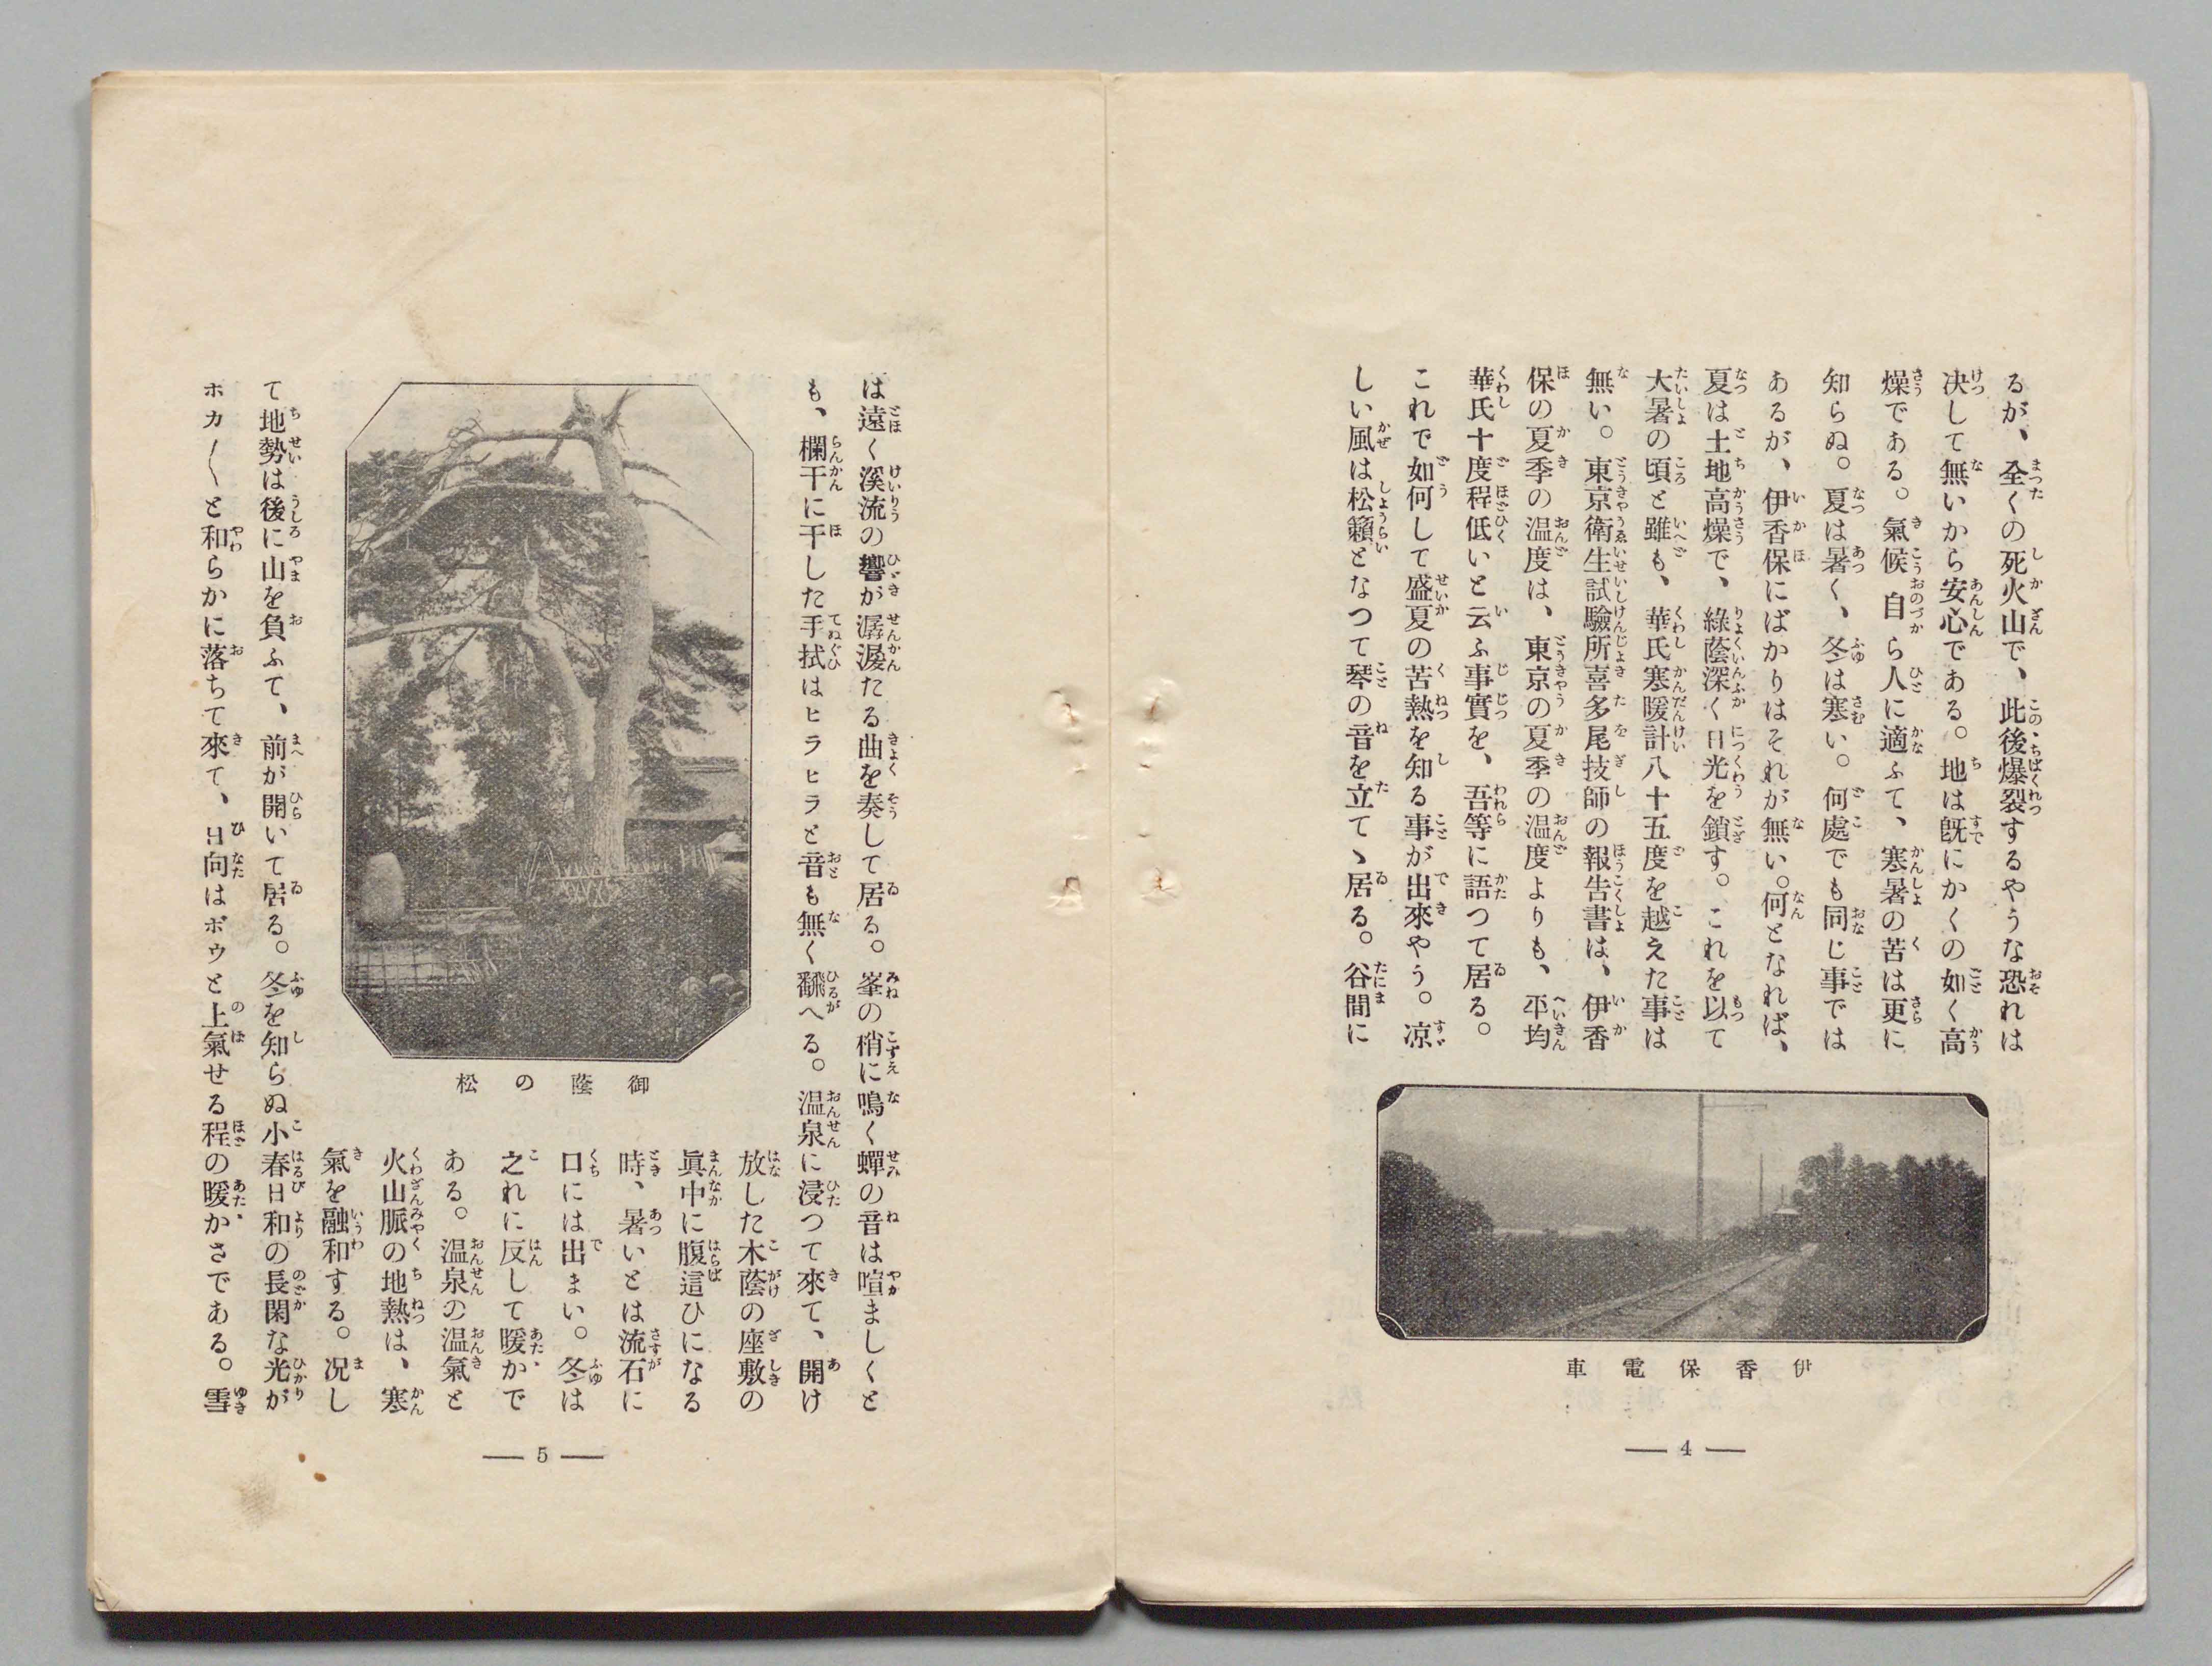 るが、全くの死火山で、此後爆裂するやうな恐れは
決して無いから安心である。地は既にかくの如く高
燥である。氣候自ら人に適ふて、寒暑の苦は更に
知らぬ。夏は暑く、冬は寒い。何處でも同じ事では
あるが、伊香保にばかりはそれが無い。何となれば、
夏は土地高燥で、綠蔭深く日光を鎖す。これを以て
大暑の頃と雖も、華氏寒暖計八十五度を越えた事は
無い。東京衛生試驗所喜多尾技師の報告書は、伊香
保の夏季の温度は、東京の夏季の温度よりも、平均
華氏十度程低いと云ふ事實を、吾等に語つて居る。
これで如何して盛夏の苦熱を知る事が出來やう。凉
しい風は松籟となつて琴の音を立てゝ居る。谷間に
伊香保電車
― 4 ―
は遠く溪流の響が潺湲たる曲を奏して居る。峯の梢に鳴く蟬の音は喧ましくと
も、欄干に干した手拭はヒラヒラと音も無く飜へる。温泉に浸つて來て、開け
放した木蔭の座敷の
眞中に腹這ひになる
時、暑いとは流石に
口には出まい。冬は
之れに反して暖かで
ある。温泉の温氣と
火山脈の地熱は、寒
氣を融和する。况し
て地勢は後に山を負ふて、前が開いて居る。冬を知らぬ小春日和の長閑な光が
ホカ〳〵と和らかに落ちて來て、日向はボウと上氣せる程の暖かさである。雪
御蔭の松
― 5 ―